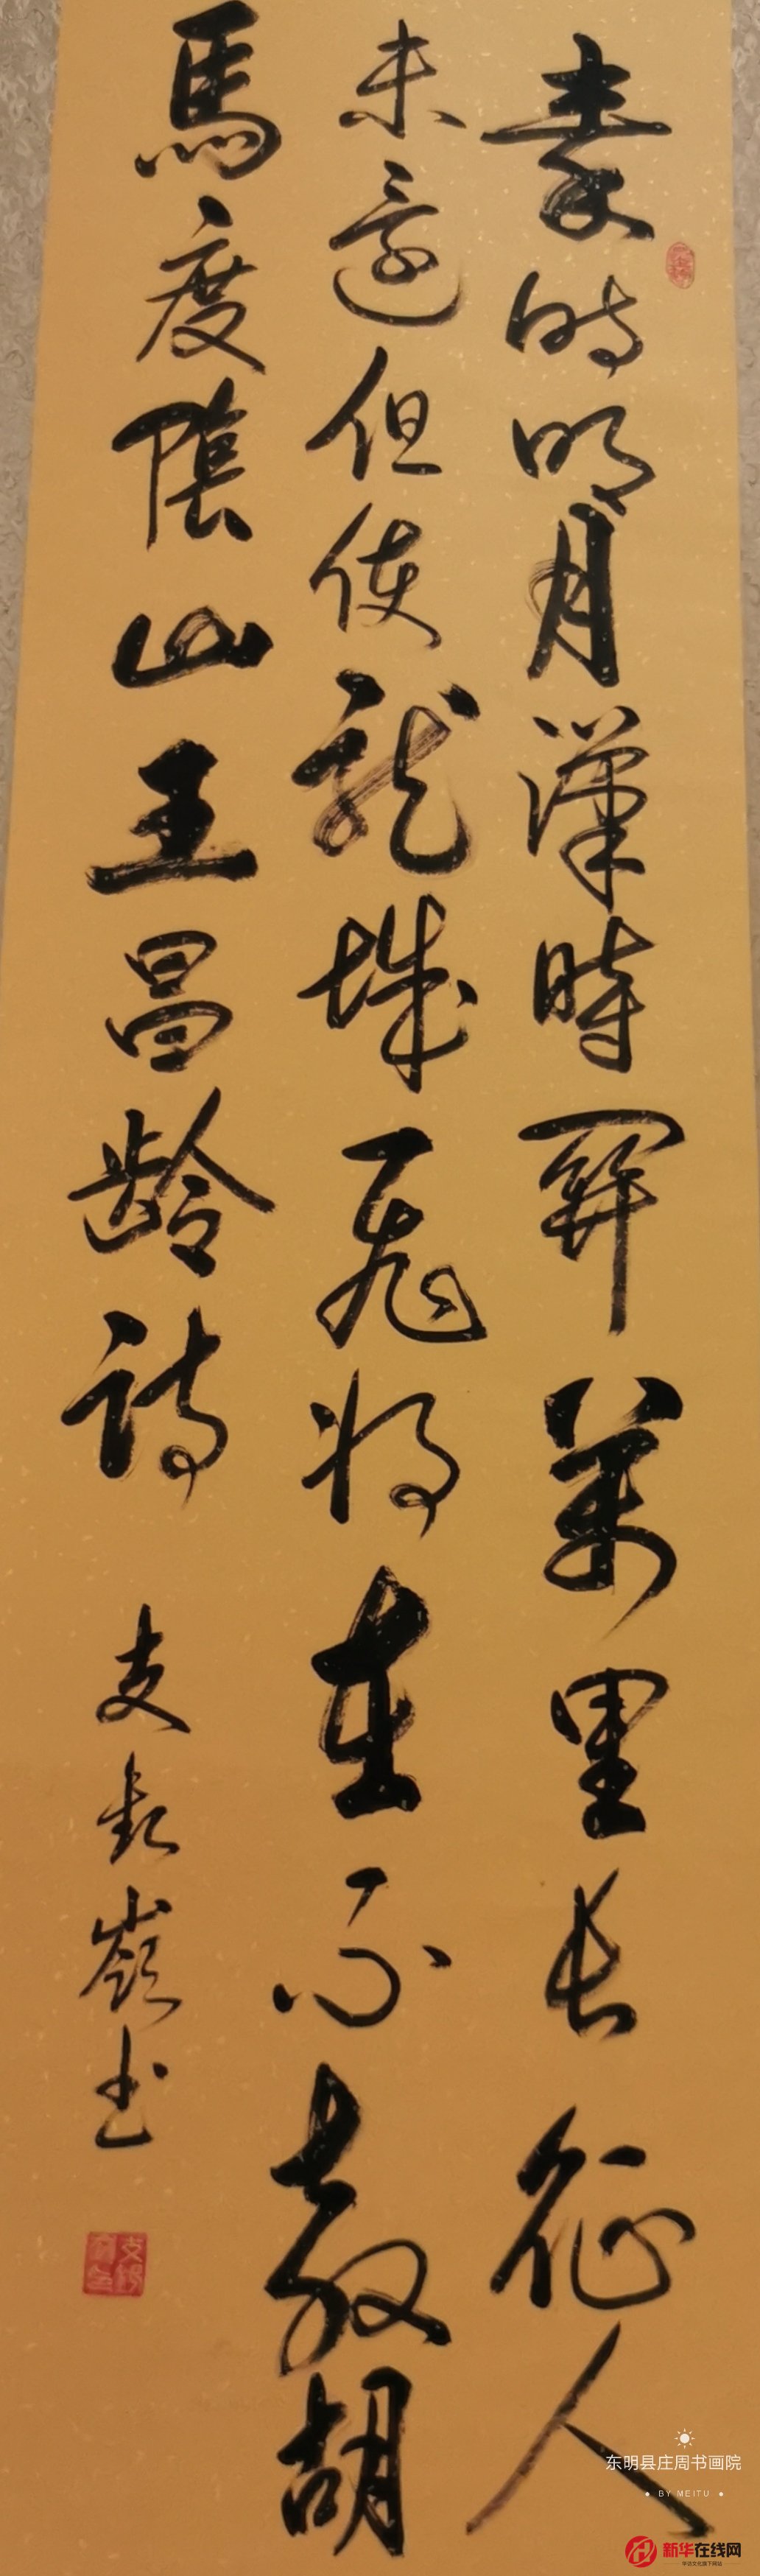 秦时明月漢時關萬里长征人
未還但使龙城飛将在不教胡
馬度陰山王昌龄诗
支嶺书
东明县庄周书画院
BY MEITU
新华在线网